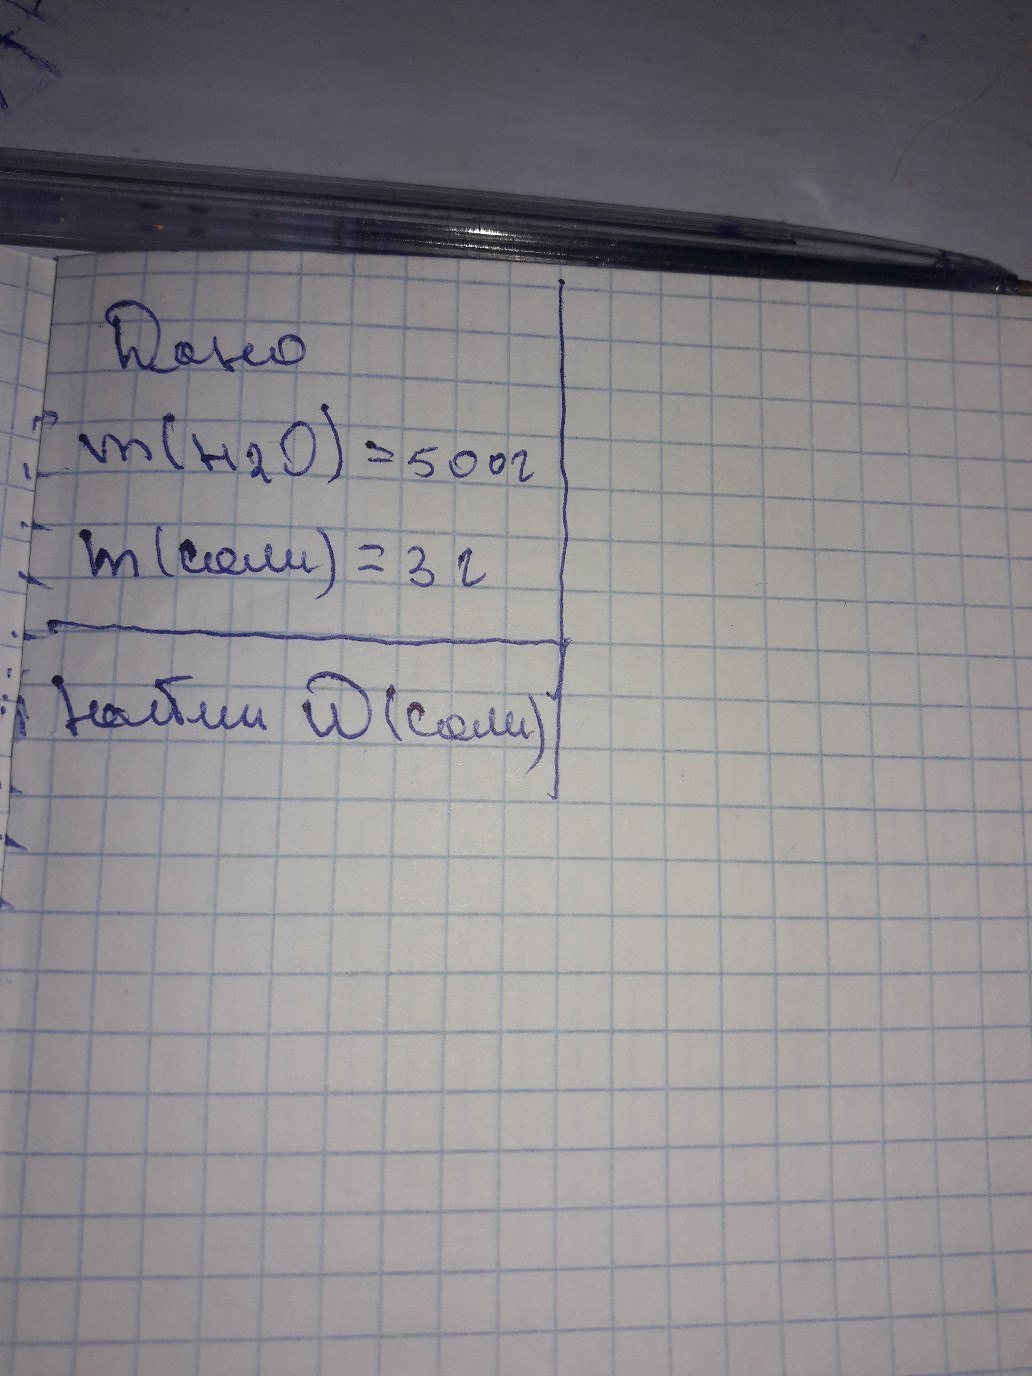 Дано
m(H2O) = 500г
m(соли) = 3 г
Найти W(соли)